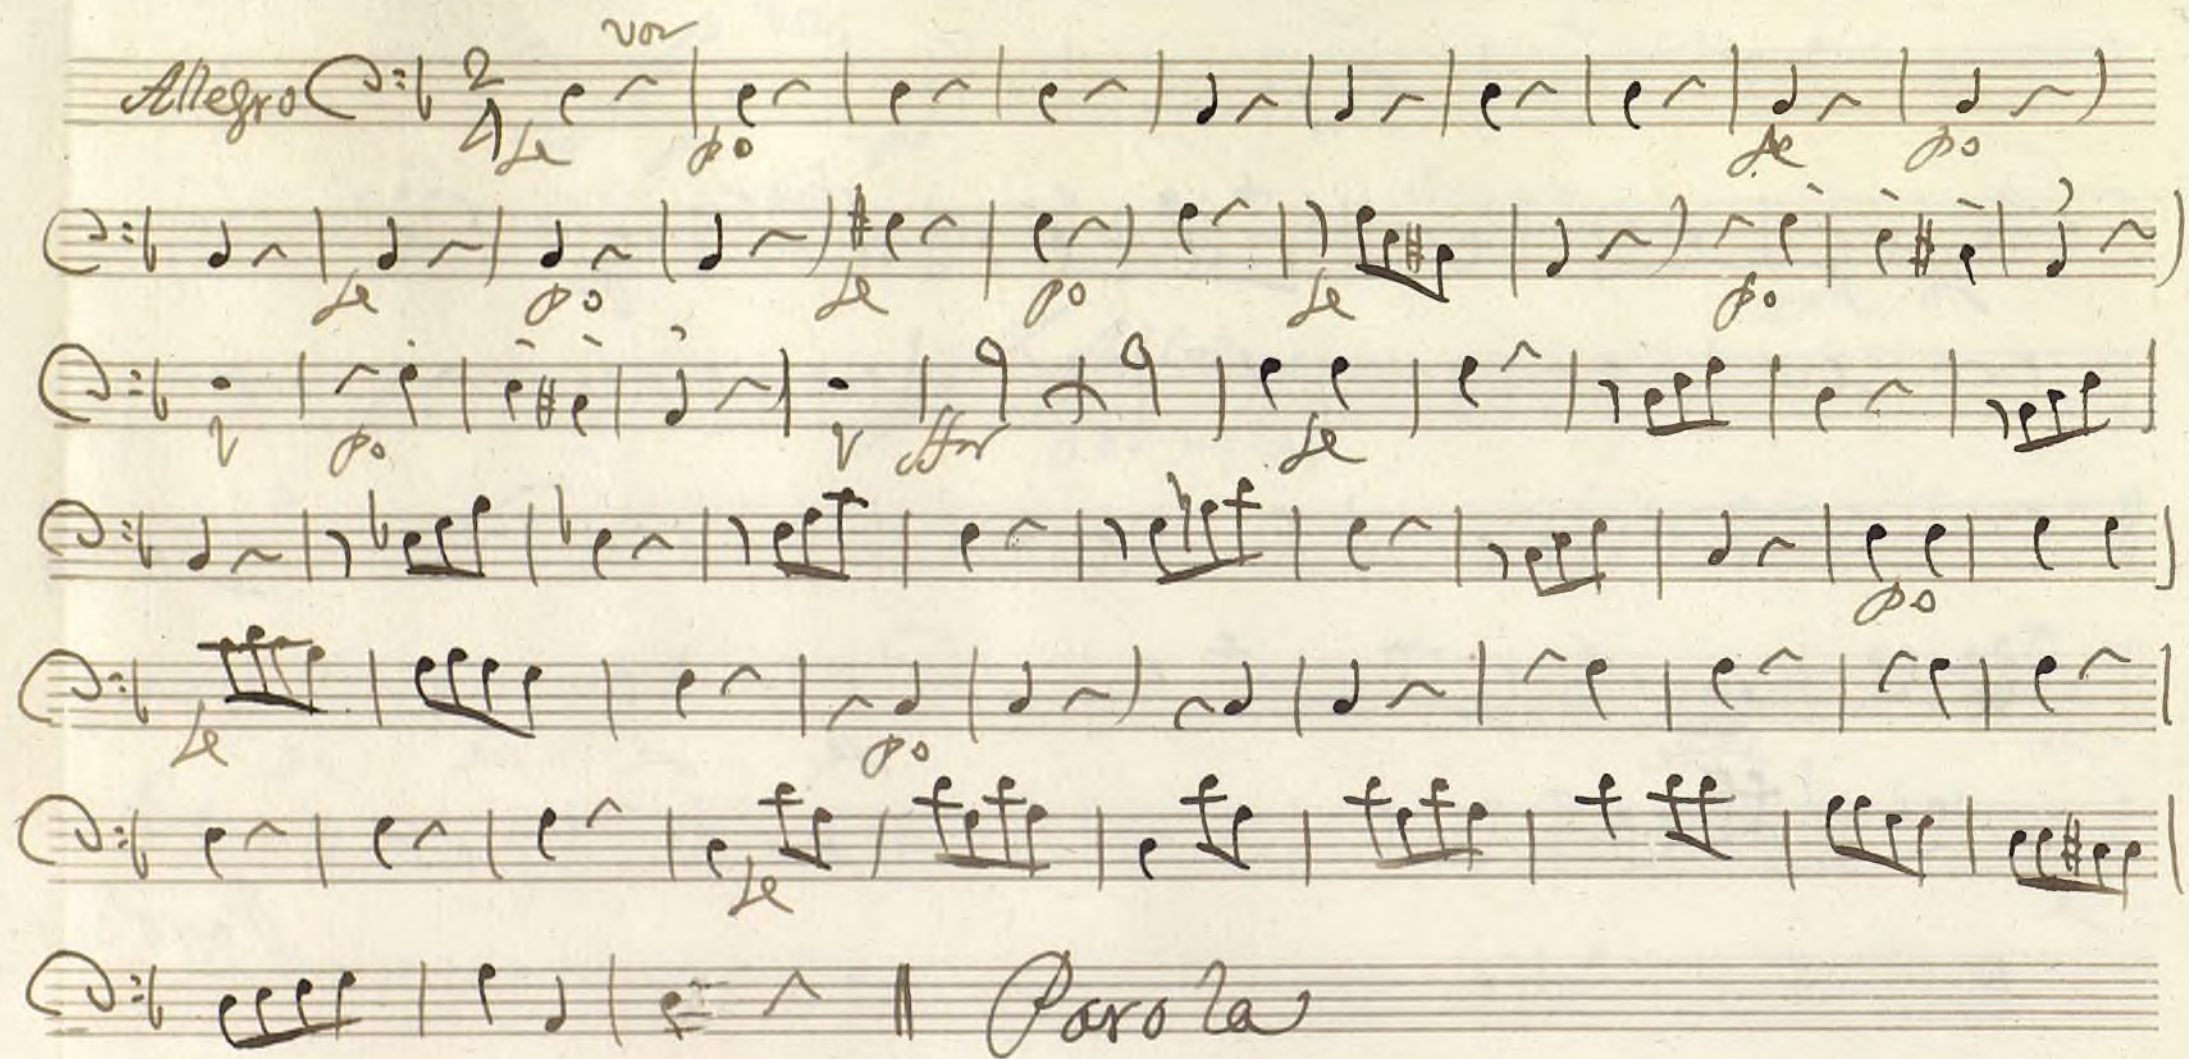 vor
Allegro 2 4
fe po fe po
fe po fe po fe po
V po V ffor fe
po
fe po
fe
Parola